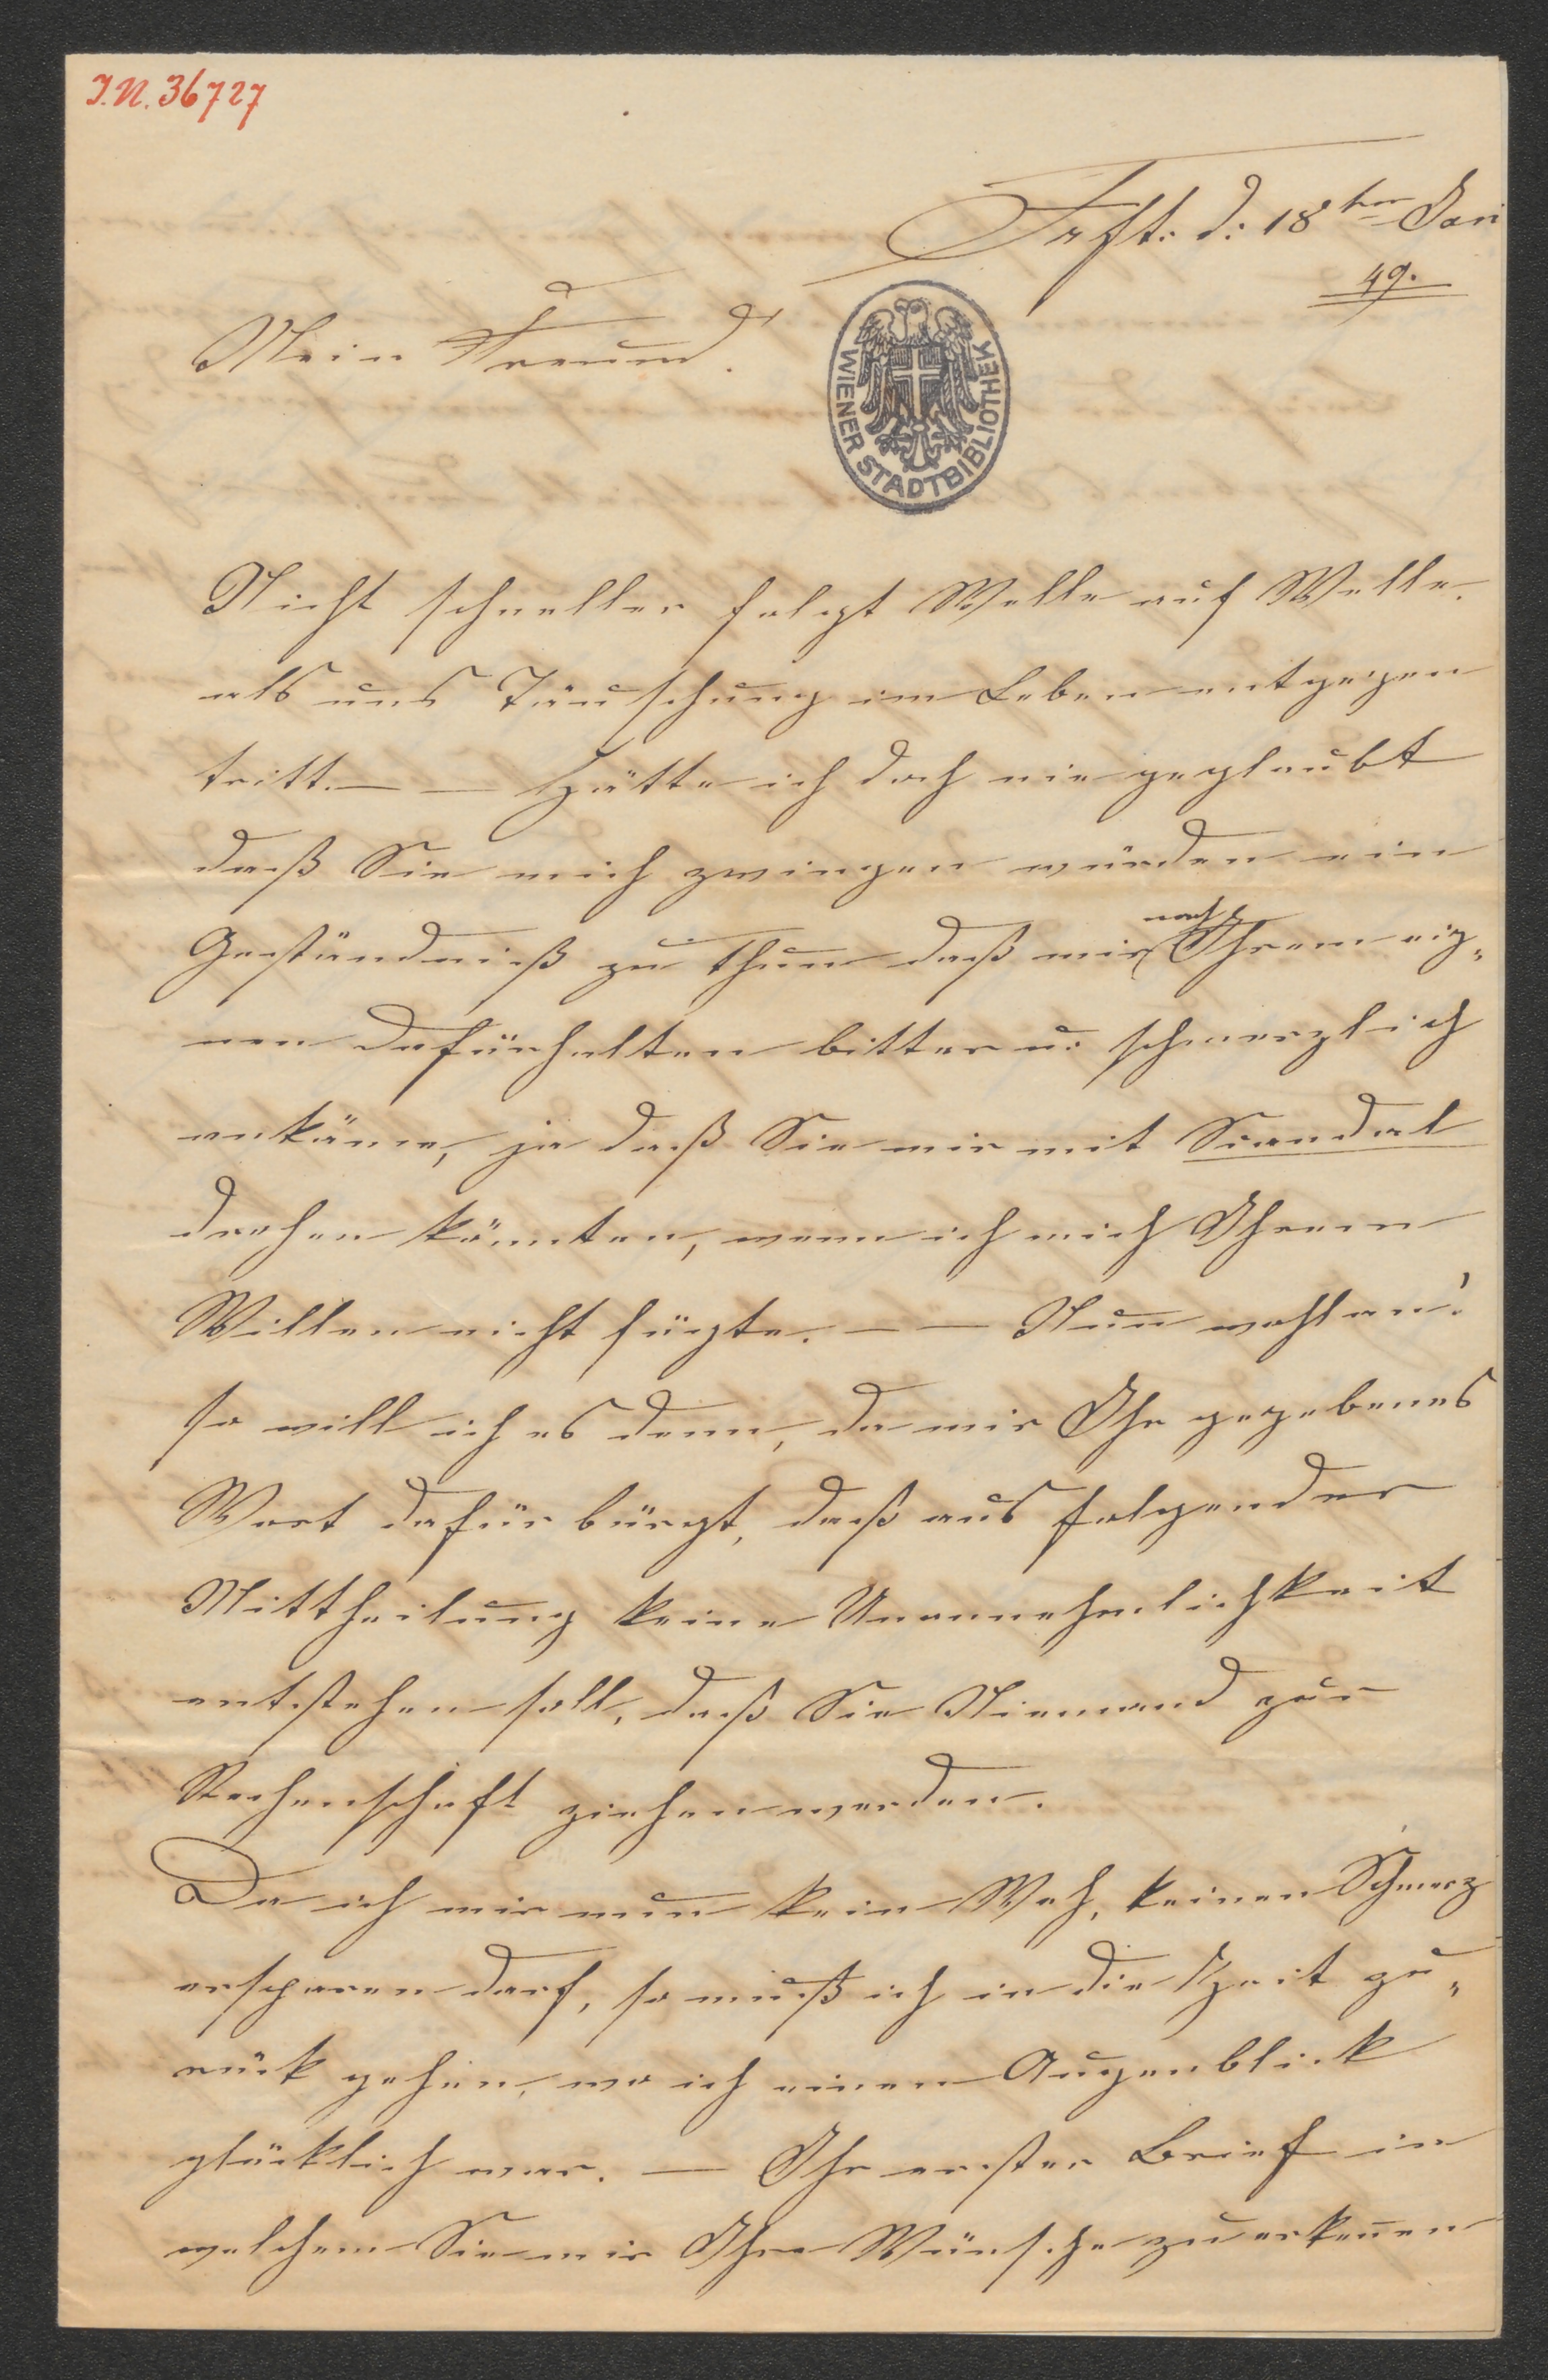 I.N. 36727
Frft: d: 18ten Jan
49.
Mein Freund!
WIENER STADTBIBLIOTHEK
Nicht schneller folgt Welle auf Welle.
als uns Täuschung im Leben entgegen
tritt. — — Hätte ich doch nie geglaubt
daß Sie mich zwingen würden ein
Geständniß zu thun daß mir nach Ihrem eig„
nen Dafürhalten bitter u: schmerzlich
ankäme, ja daß Sie mir mit Scandal
drohen könnten, wenn ich mich Ihrem
Willen nicht fügte. — — Nun wohlan!
so will ich es denn, da mir Ihr gegebenes
Wort dafür bürgt, daß aus folgender
Mittheilung keine Unannehmlichkeit
entstehen soll, daß Sie Niemand zur
Rechenschaft ziehen werden.
Da ich mir nun kein Weh, keinen Schmerz
ersparen darf, so muß ich in die Zeit zu„
rück gehen, wo ich einen Augenblick
glücklich war. — Ihr erster Brief in
welchem Sie mir Ihre Wünsche zu erkennen